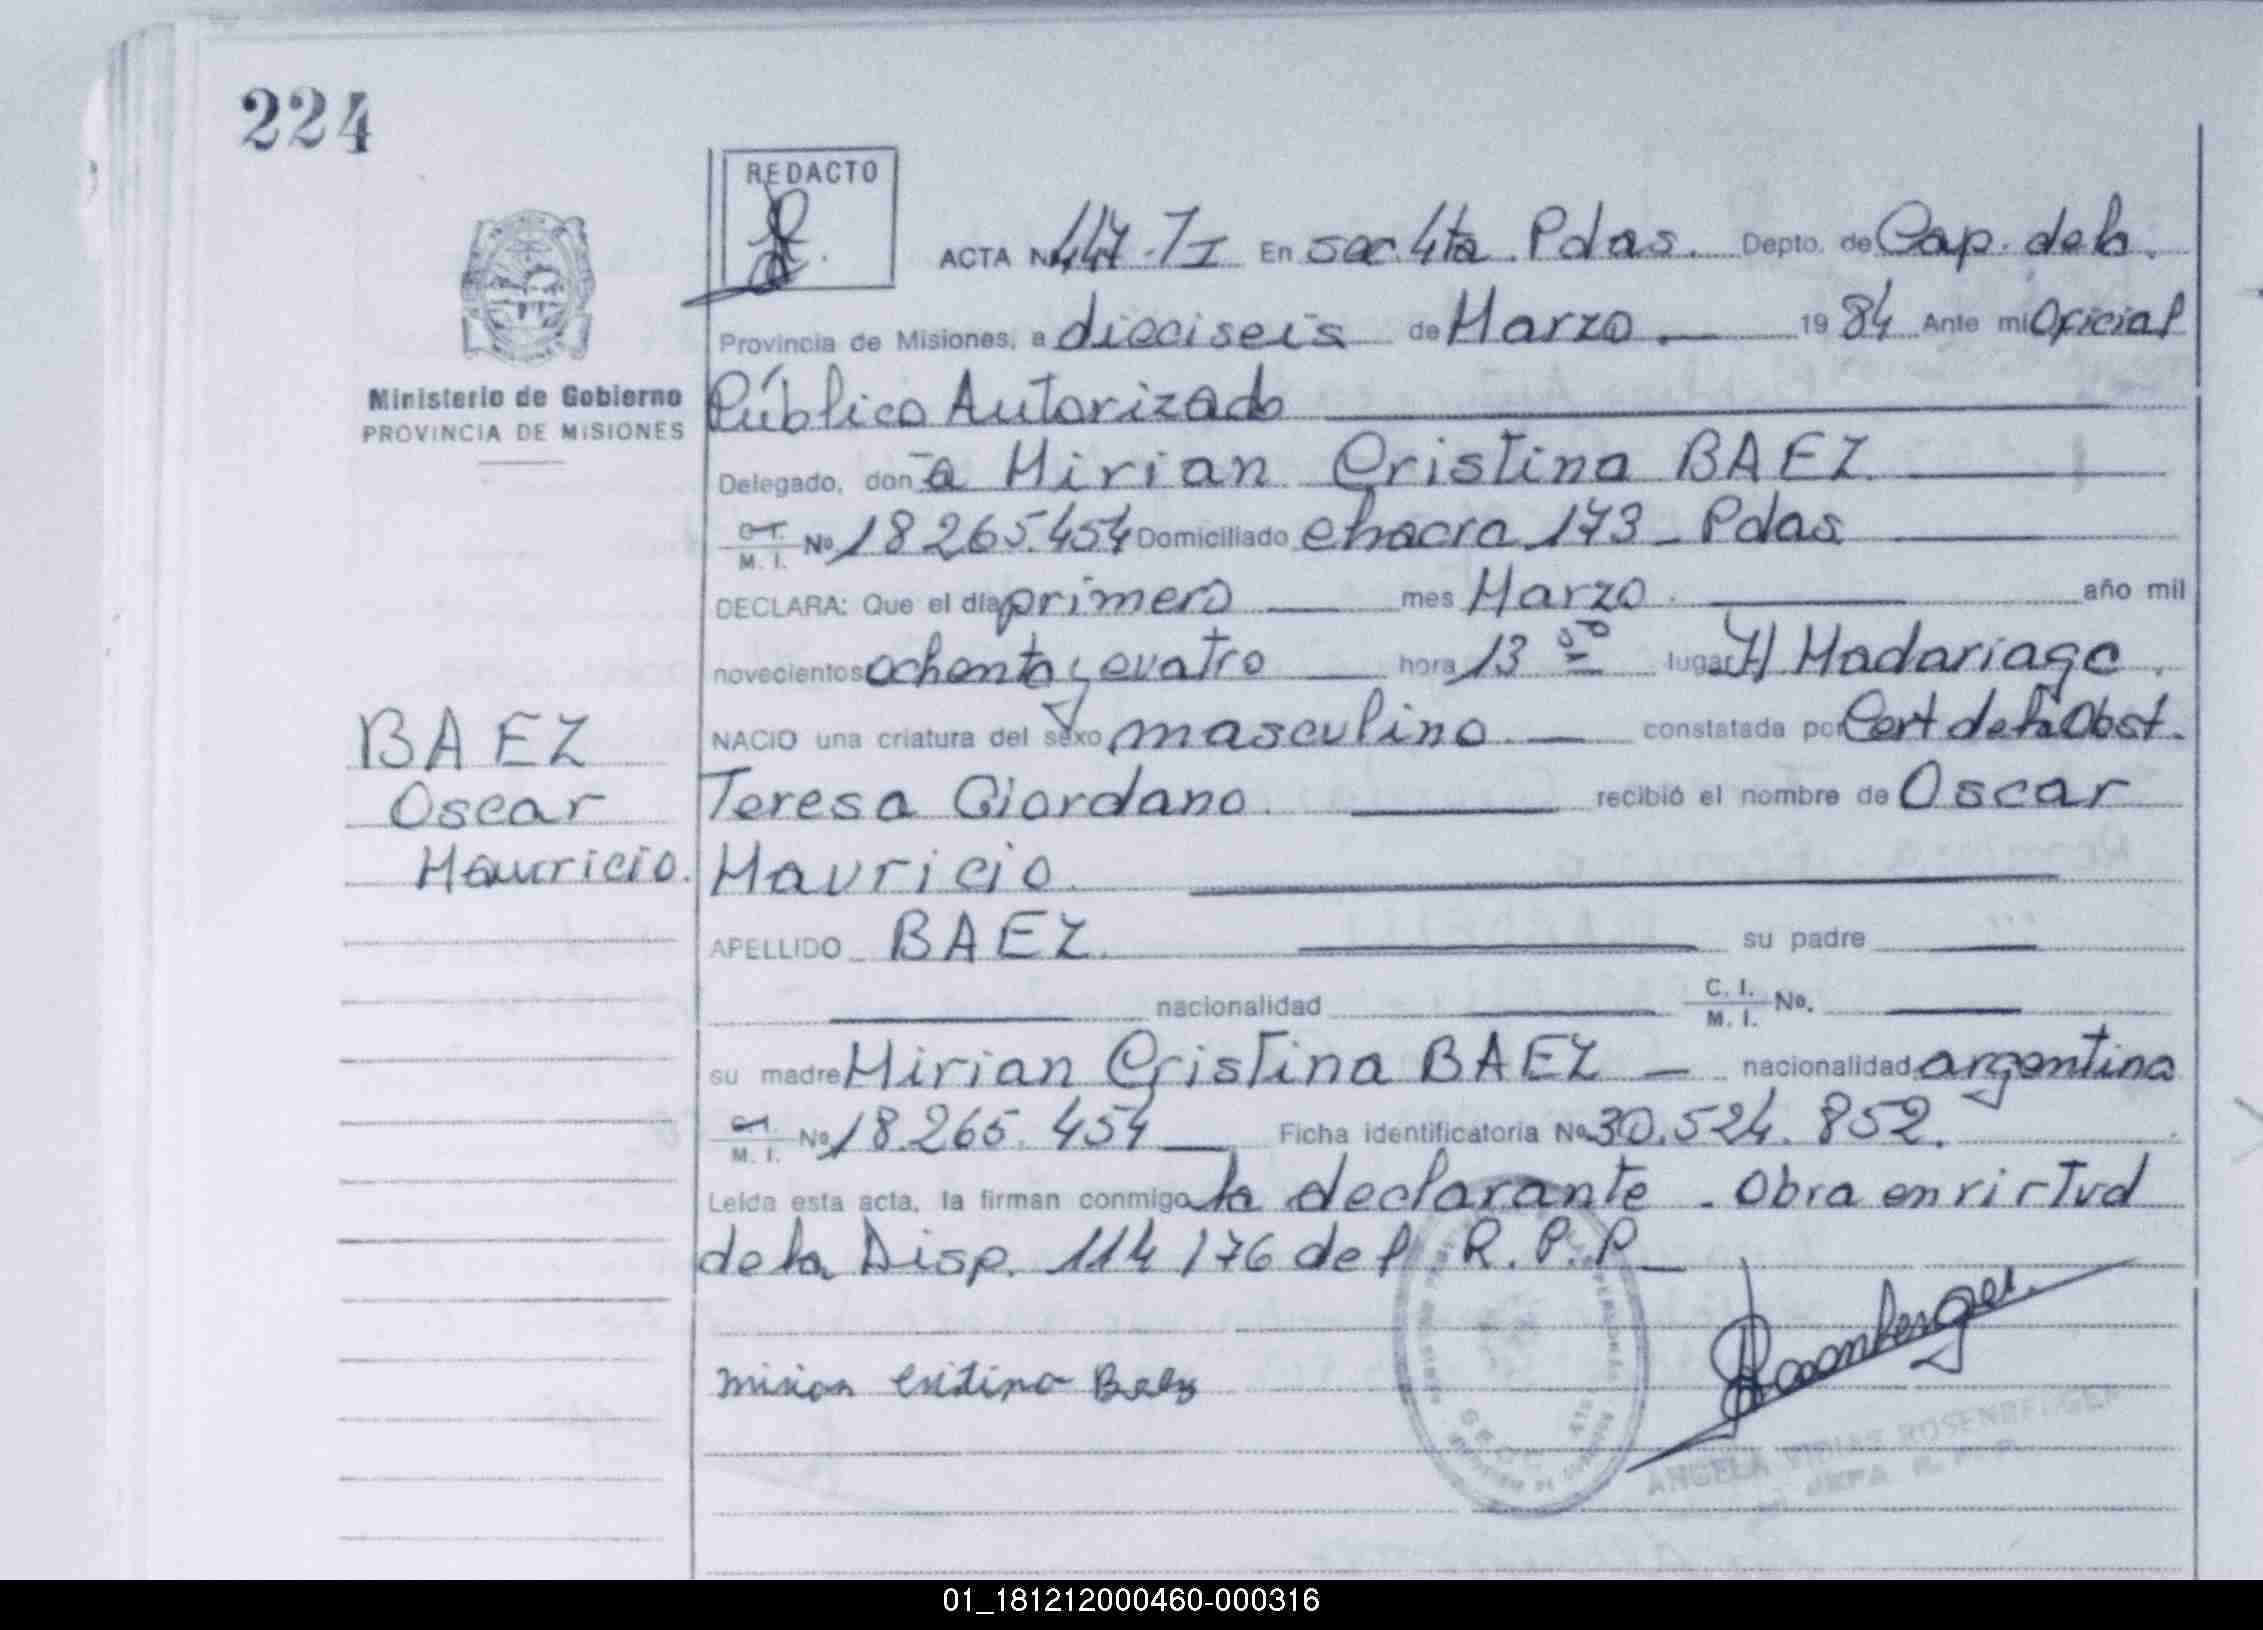 224
REDACTO
ACTA Nº 447. TI En sec. 4ta. Pdas. Depto. de Cap. de la.
Provincia de Misiones, a dieciseis de Marzo 19 84 Ante mi Oficial
Ministerio de Gobierno
PROVINCIA DE MISIONES
Público Autorizado
Delegado, doña Mirian Cristina BAEZ.
C.I. M. I. Nº 18265.454 Domiciliado chacra 173 - Pdas
DECLARA: Que el día primero mes Marzo. año mil
novecientos ochenta y cuatro hora 13 50 lugar H Madariaga.
NACIO una criatura del sexo masculino. constatada por Cert de la Obst.
BAEZ
Oscar
Mauricio.
Teresa Giordano. recibió el nombre de Oscar
Mauricio.
APELLIDO BAEZ. su padre
nacionalidad C. I. M. I. No.
su madre Mirian Cristina BAEZ nacionalidad argentina
C.I. M. I. Nº 18.265.454 Ficha identificatoria Nº 30.524.852.
Leída esta acta, la firman conmigo la declarante. Obra en virtud
de la Disp. 114/76 del R.P.P
Mirian Cristina Baez
Rosenberger.
ANGELA ROSENBERGER
JEFA R. P. P.
01_181212000460-000316